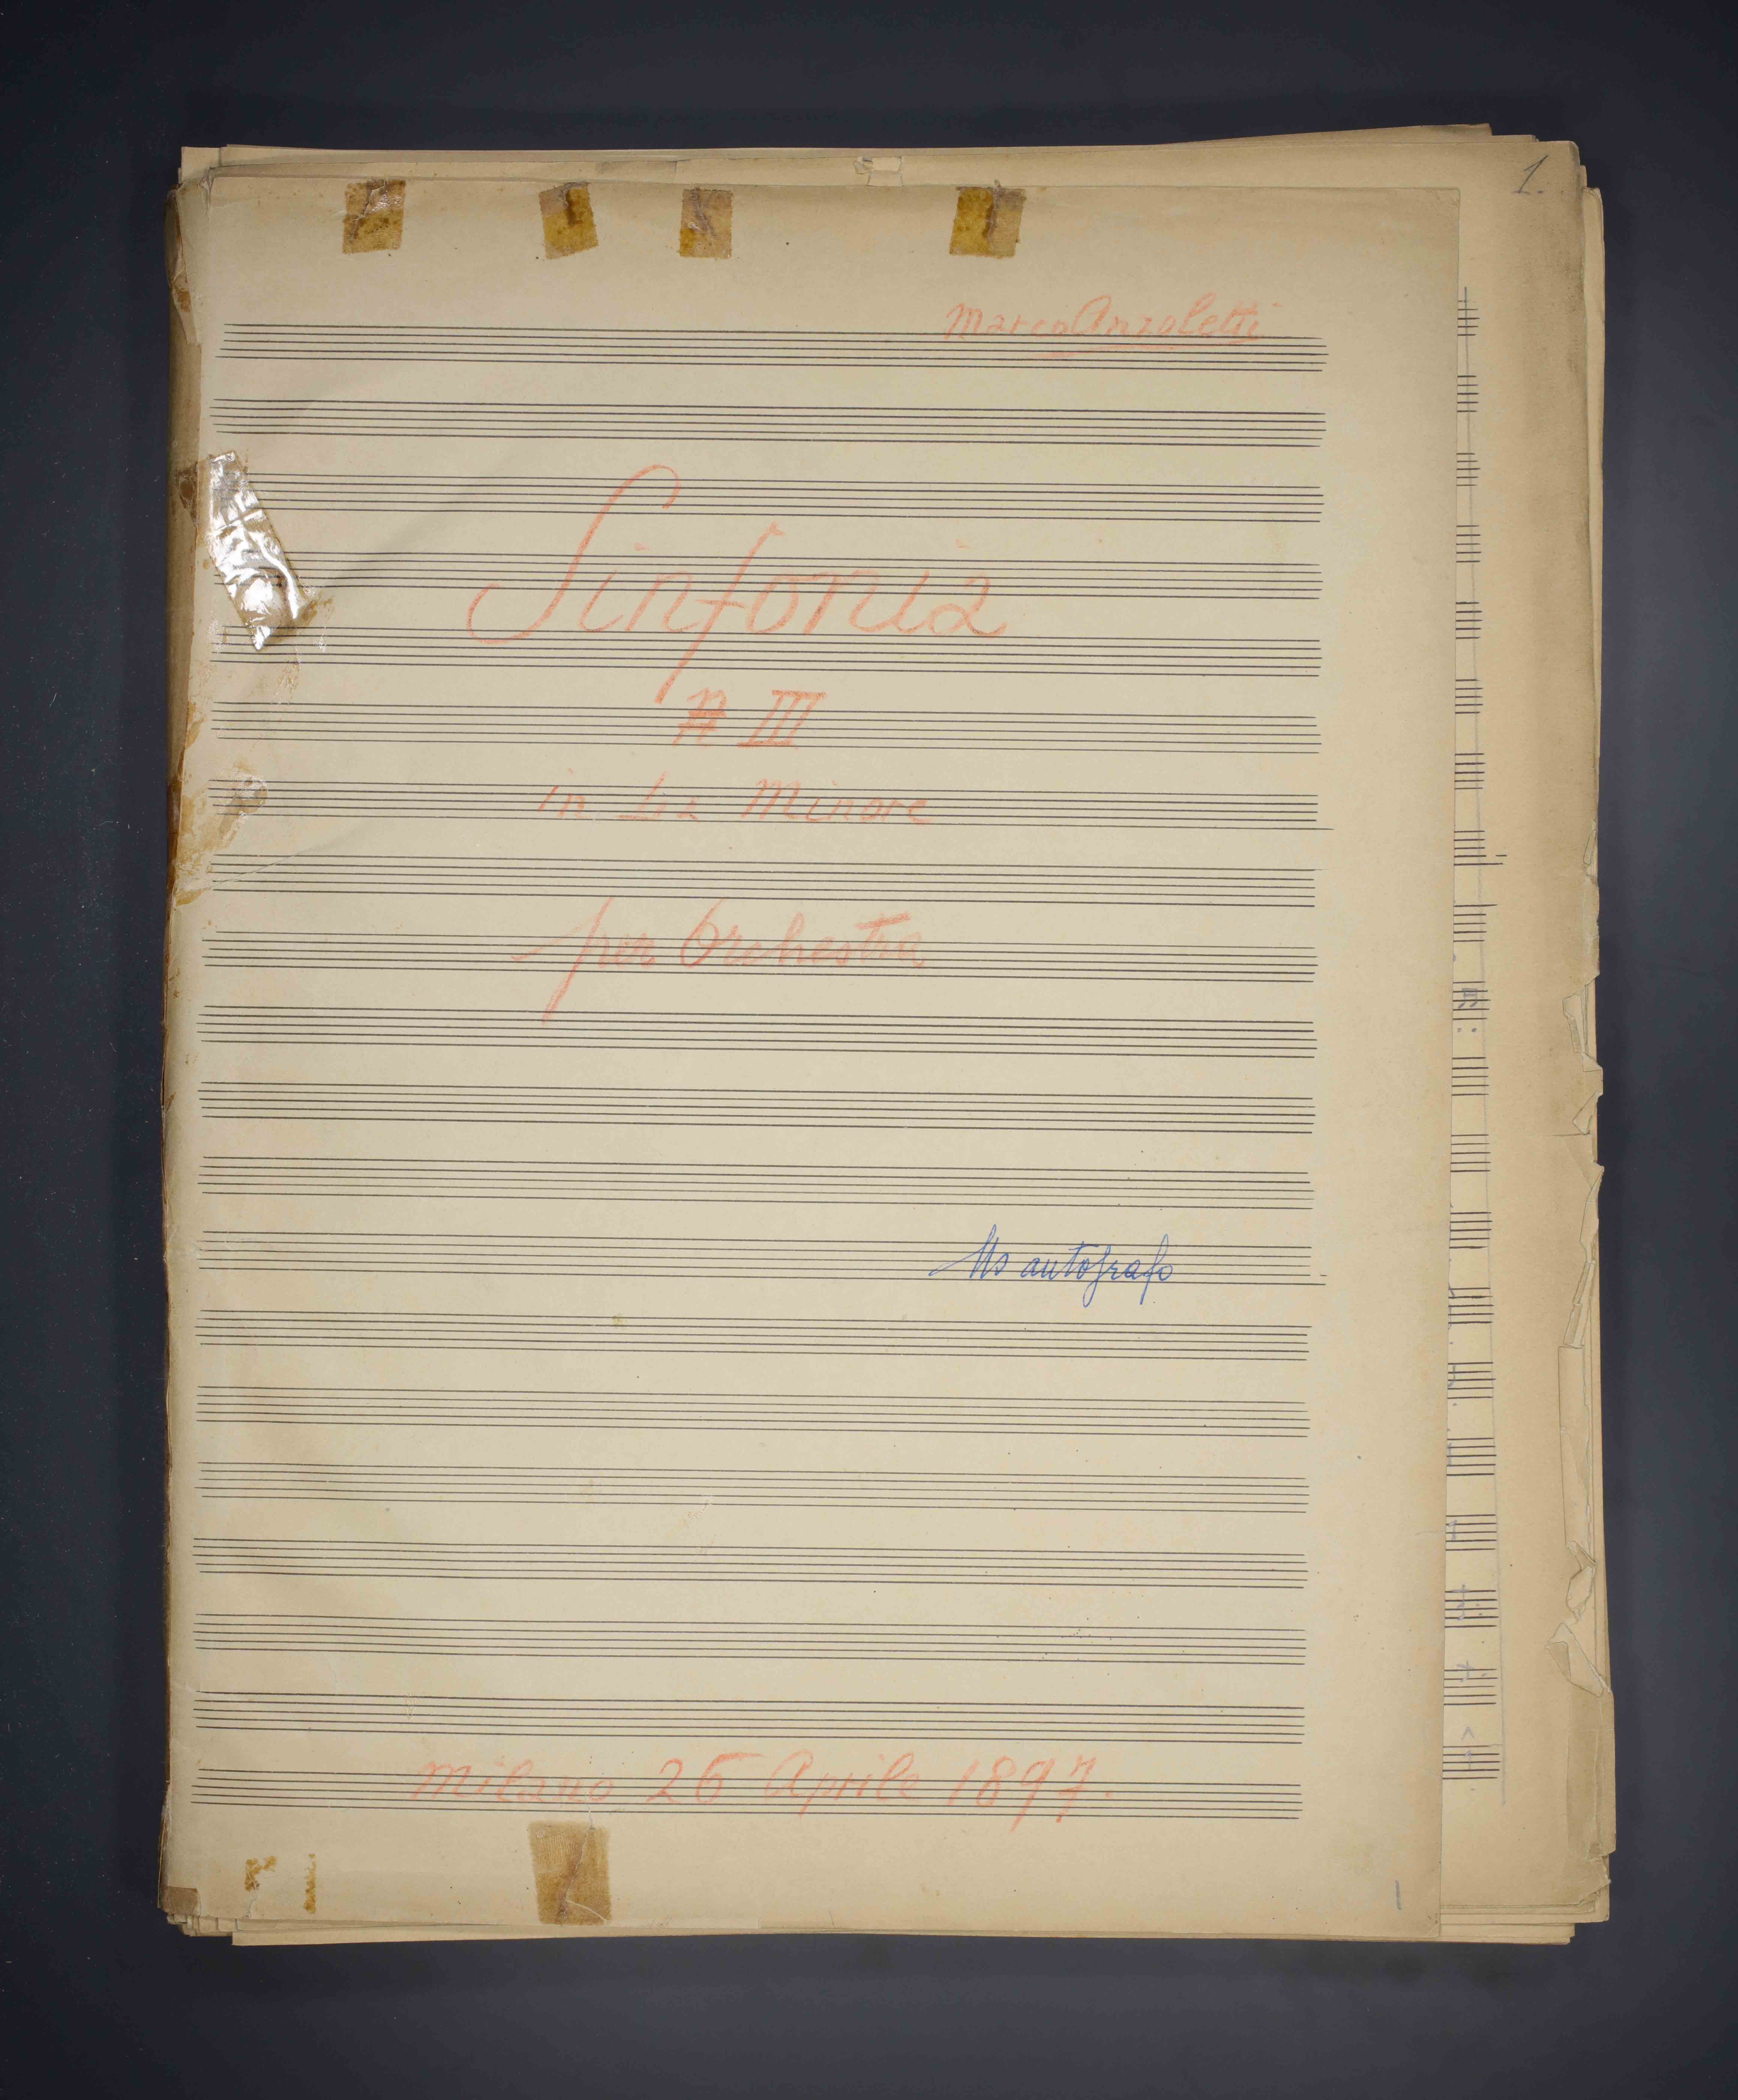 1.
Marco Anzoletti
Sinfonia
N III
in La Minore
per Orchestra
Ms autografo
Milano 26 Aprile 1897.
1